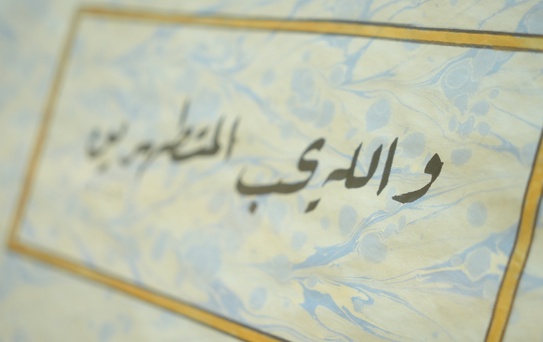 والله يحب المتطهرين